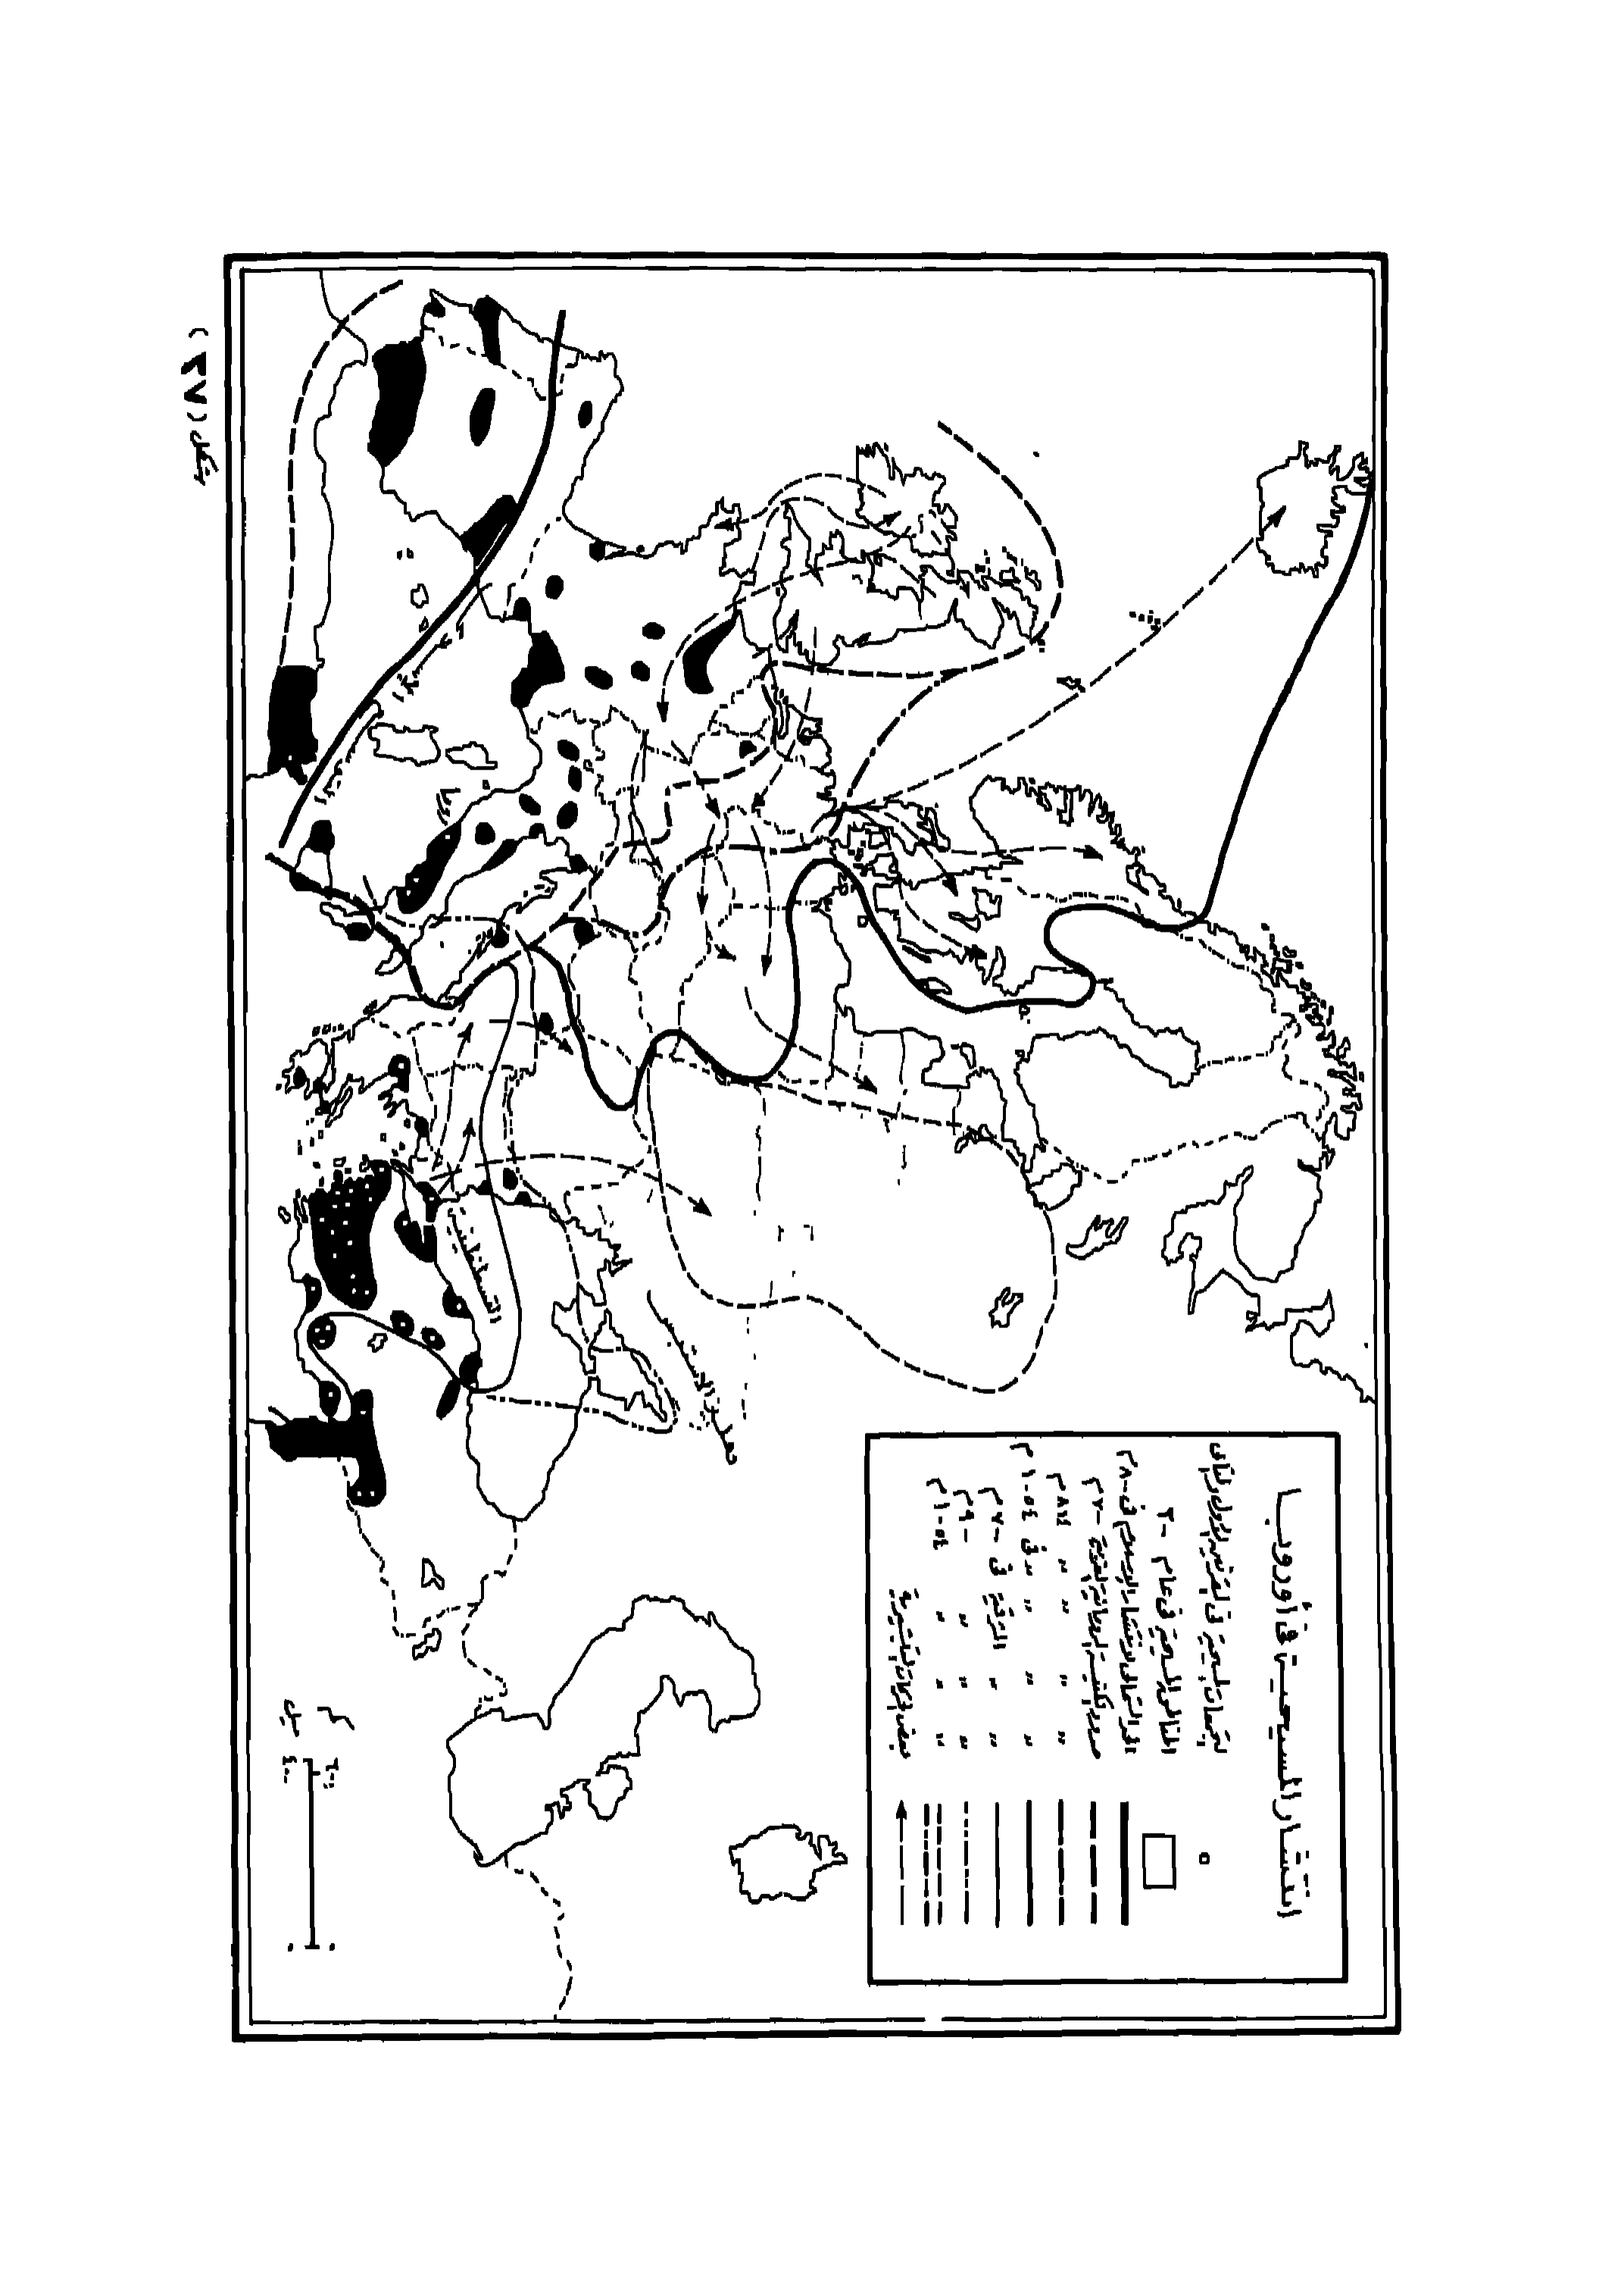 انتشار المسيحية فى أوروبا
تجمعات مسيحية فى القرنين الأول والثانى
المناطق المسيحية فى عام ٣٠٠
الحد الشمالى لانتشار الإسلام فى ٨٠٠م
حدود الكنيسة الرومانية الغربية ٧٠٠م
" " " " ٨١٤م
" " " فى ١٠٥٤م
" " الشرقية فى ٧٠٠م
" " " ٩٠٠م
" " " ١٠٥٤م
بعض الحركات التبشيرية
ميل